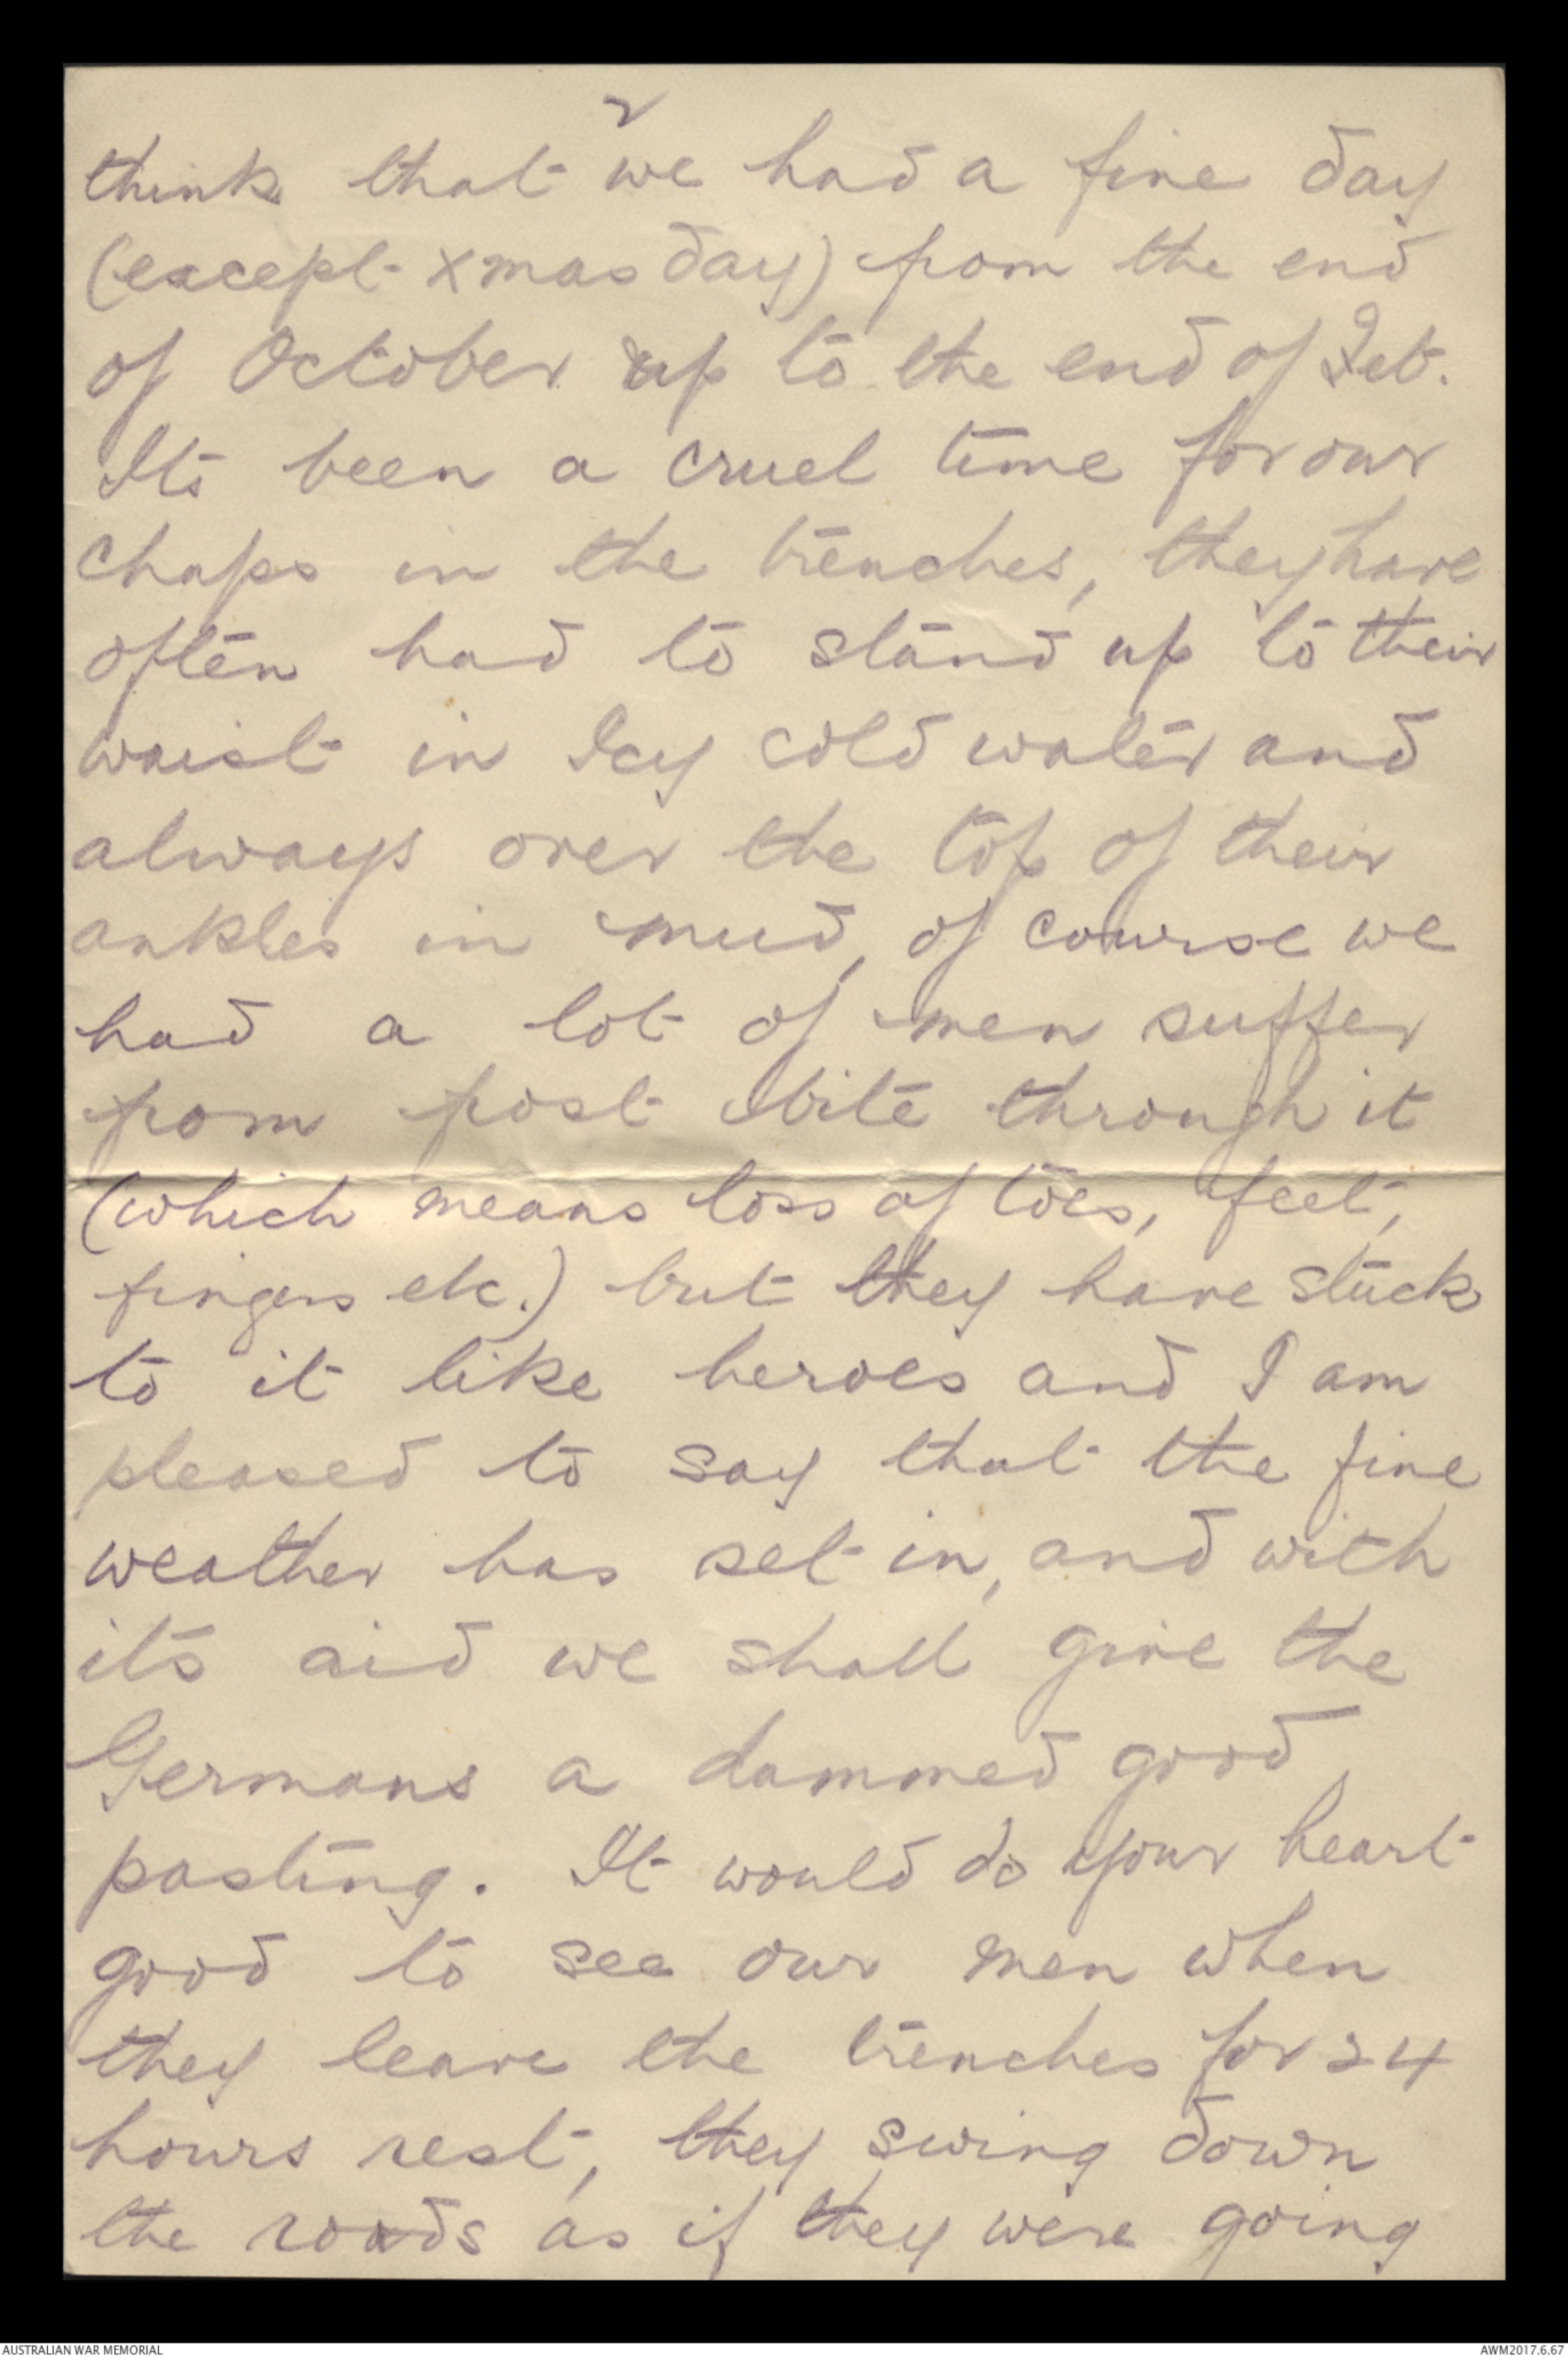 2
think that we had a fine day
(except Xmas day) from the end
of October up to the end of Feb.
Its been a cruel time for our
chaps in the trenches, they have
often had to stand up to their
waist in Icy cold water and
always over the top of their
ankles in mud, of course we
had a lot of men suffer
from frost bite through it
(which means loss of toes, feet,
fingers etc.) but they have stuck
to it like heroes and I am
pleased to say that the fine
weather has set in, and with
its aid we shall give the
Germans a dammed good
pasting. It would do your heart
good to see our men when
they leave the trenches for 24
hours rest, they swing down
the roads as if they were going
AUSTRALIAN WAR MEMORIAL
AWM2017.6.67